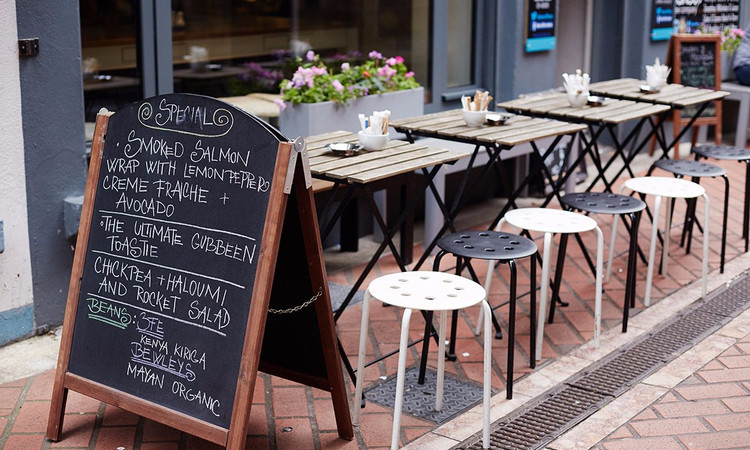 SPECIAL
• SMOKED SALMON
WRAP WITH LEMON PEPPER
CREME FRAICHE +
AVOCADO
• THE ULTIMATE GUBBEEN
TOASTIE
CHICKPEA + HALOUMI
AND ROCKET SALAD
BEANS: 3FE
KENYA KIRIGA
BEWLEYS
MAYAN ORGANIC